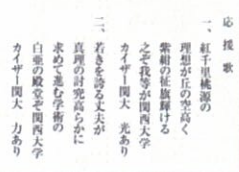 応援歌
一、紅千里桃源の
理想が丘の空高く
紫紺の征旗輝ける
之ぞ我等が関西大学
カイザー関大 光あり
二、若きを誇る丈夫が
真理の討究高らかに
求めて進む学術の
白亜の殿堂ぞ関西大学
カイザー関大 力あり